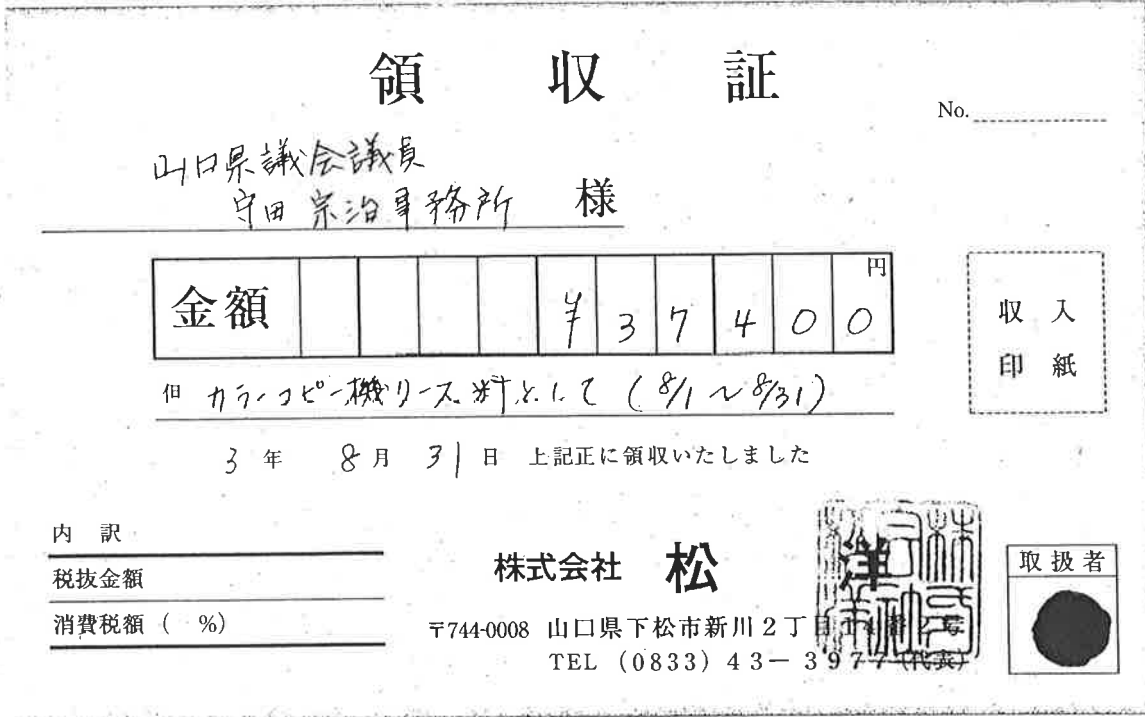 領収証
No.
山口県議会議員
守田宗治事務所 様
金額 ¥37400円
収入
印紙
但 カラーコピー機リース料として (8/1〜8/31)
3年 8月 31日 上記正に領収いたしました
内訳
税抜金額
消費税額 ( %)
株式会社 松洋
取扱者
〒744-0008 山口県下松市新川2丁目
TEL (0833) 43-3977 (代表)